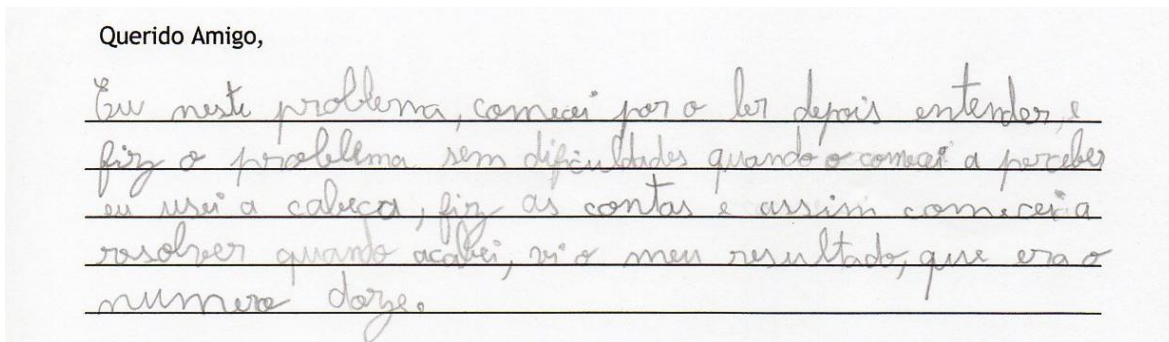 Querido Amigo,
Eu neste problema, comecei por o ler depois entender, e
fiz o problema sem dificuldades quando o comecei a perceber
eu usei a cabeça, fiz as contas e assim comecei a
resolver quando acabei, vi o meu resultado, que era o
numero doze.